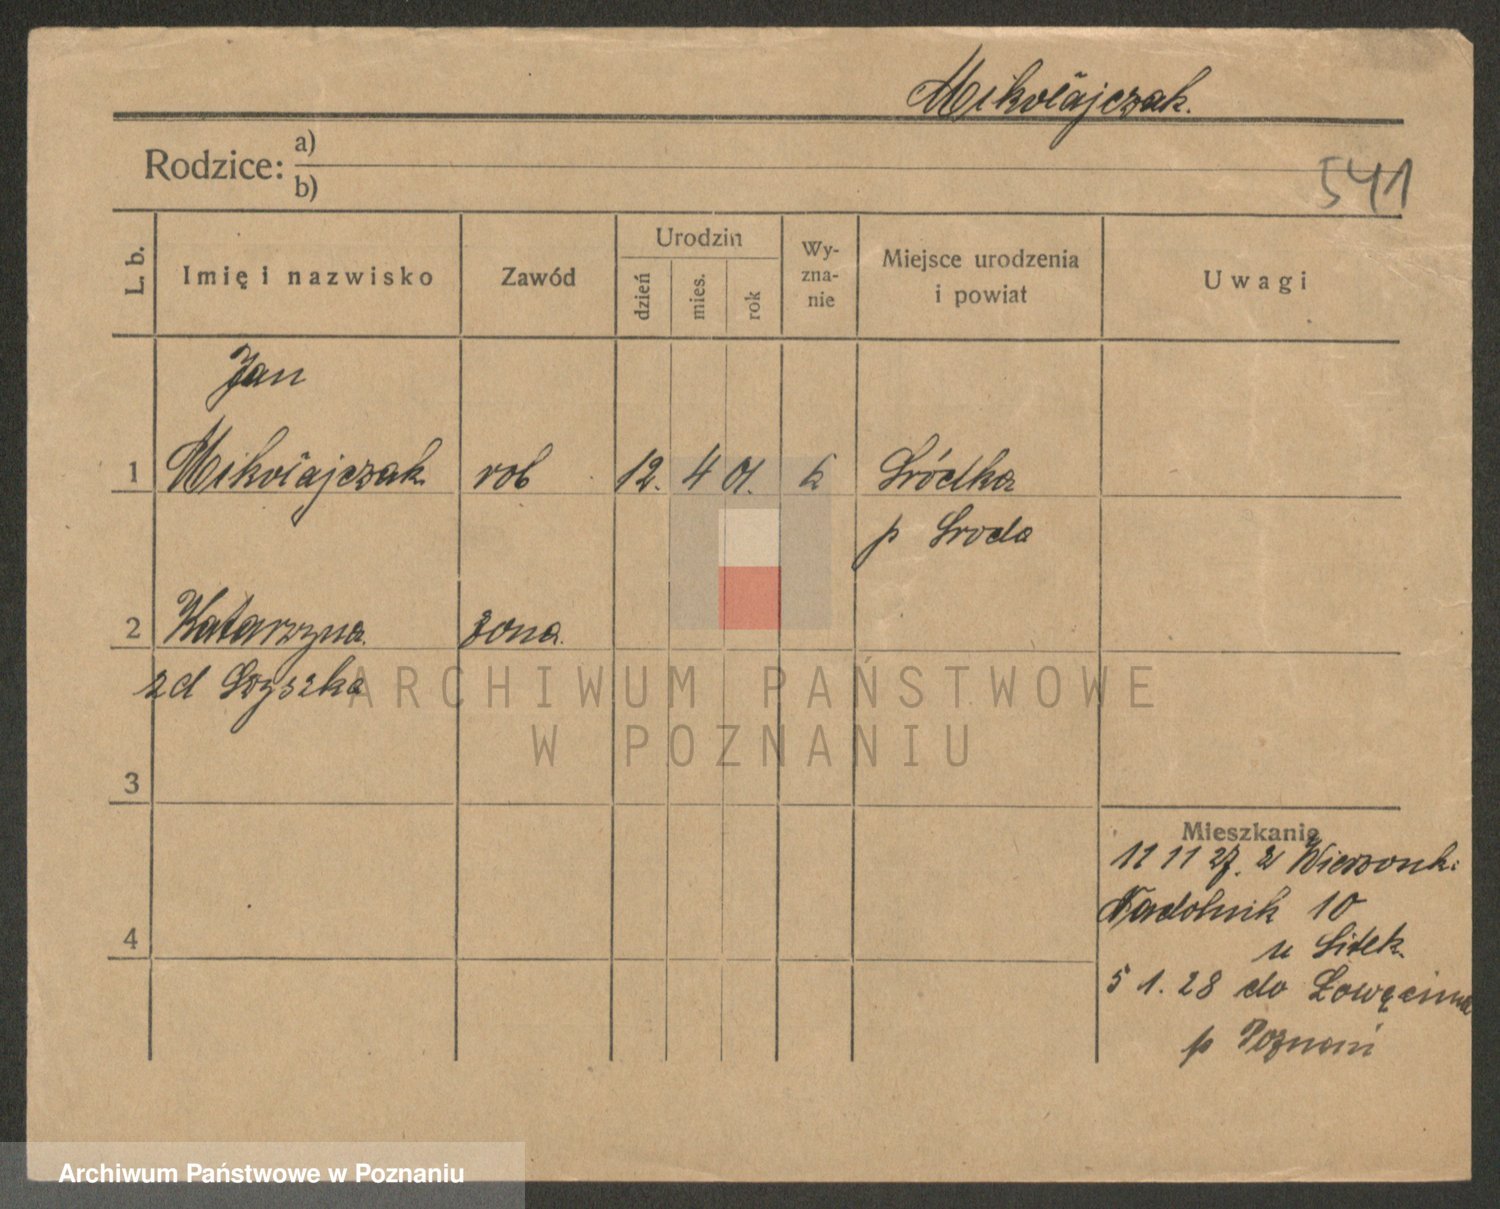 Mikołajczak.
Rodzice: a)
b)
541
L. b.
Imię i nazwisko
Zawód
Urodzin
dzień
mies.
rok
Wy-
zna-
nie
Miejsce urodzenia
i powiat
Uwagi
Jan
1 Mikołajczak rob 12. 4 01. k Sródka
p Sroda
2 Katarzyna żona
zd
3
4
Mieszkanie
11 11 27. z Wierzonk.
Nadolnik 10
u Sitek
5 1. 28 do Łowęcina
p Poznań
ARCHIWUM PAŃSTWOWE
W POZNANIU
Archiwum Państwowe w Poznaniu